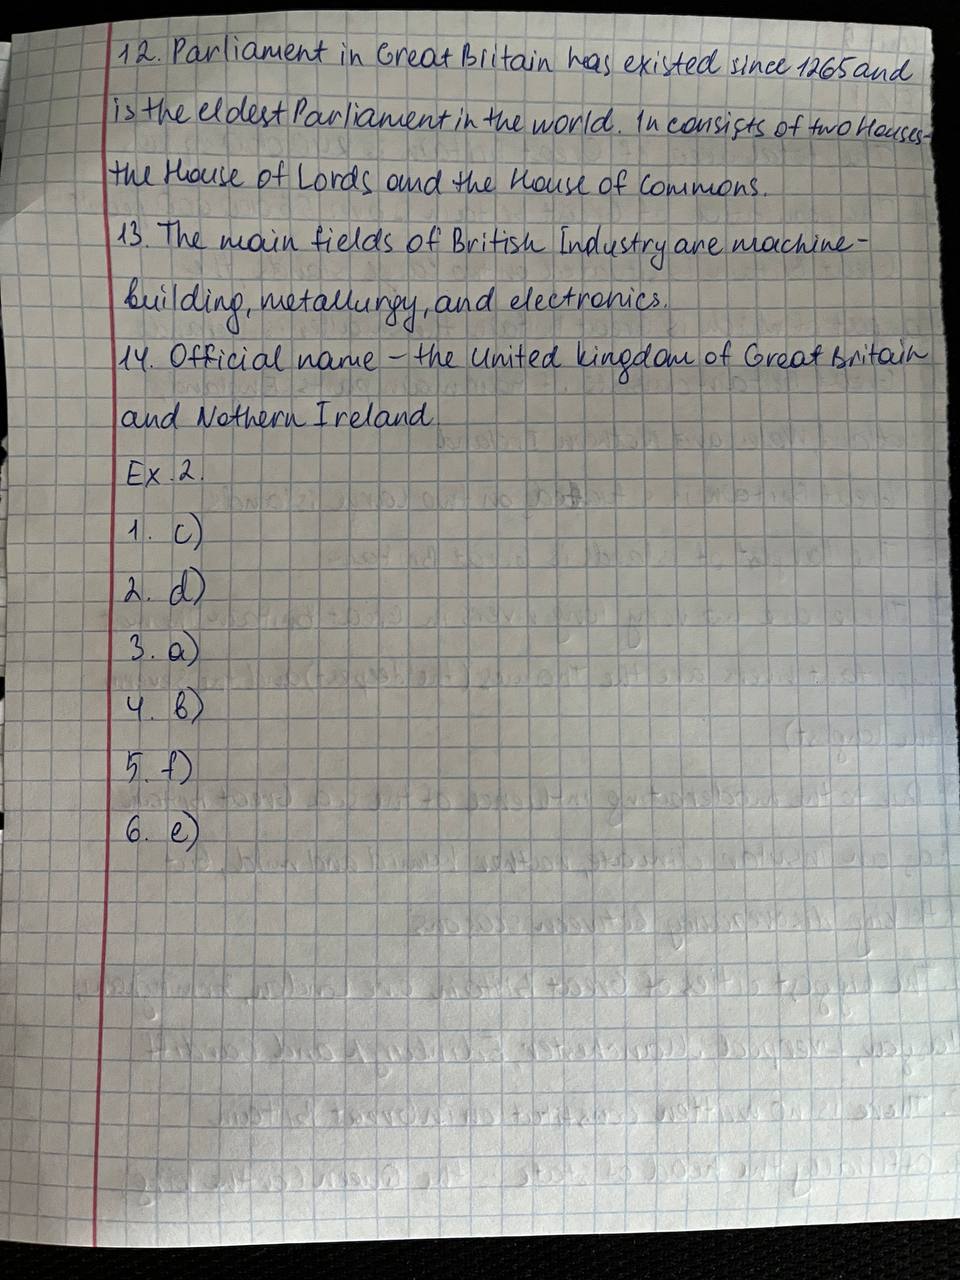 12. Parliament in Great Britain has existed since 1265 and
is the eldest Parliament in the world. In consists of two Houses-
the House of Lords and the House of Commons.
13. The main fields of British Industry are machine-
building, metallurgy, and electronics.
14. Official name – the United kingdom of Great Britain
and Nothern Ireland.
Ex. 2.
1. c)
2. d)
3. a)
4. b)
5. f)
6. e)